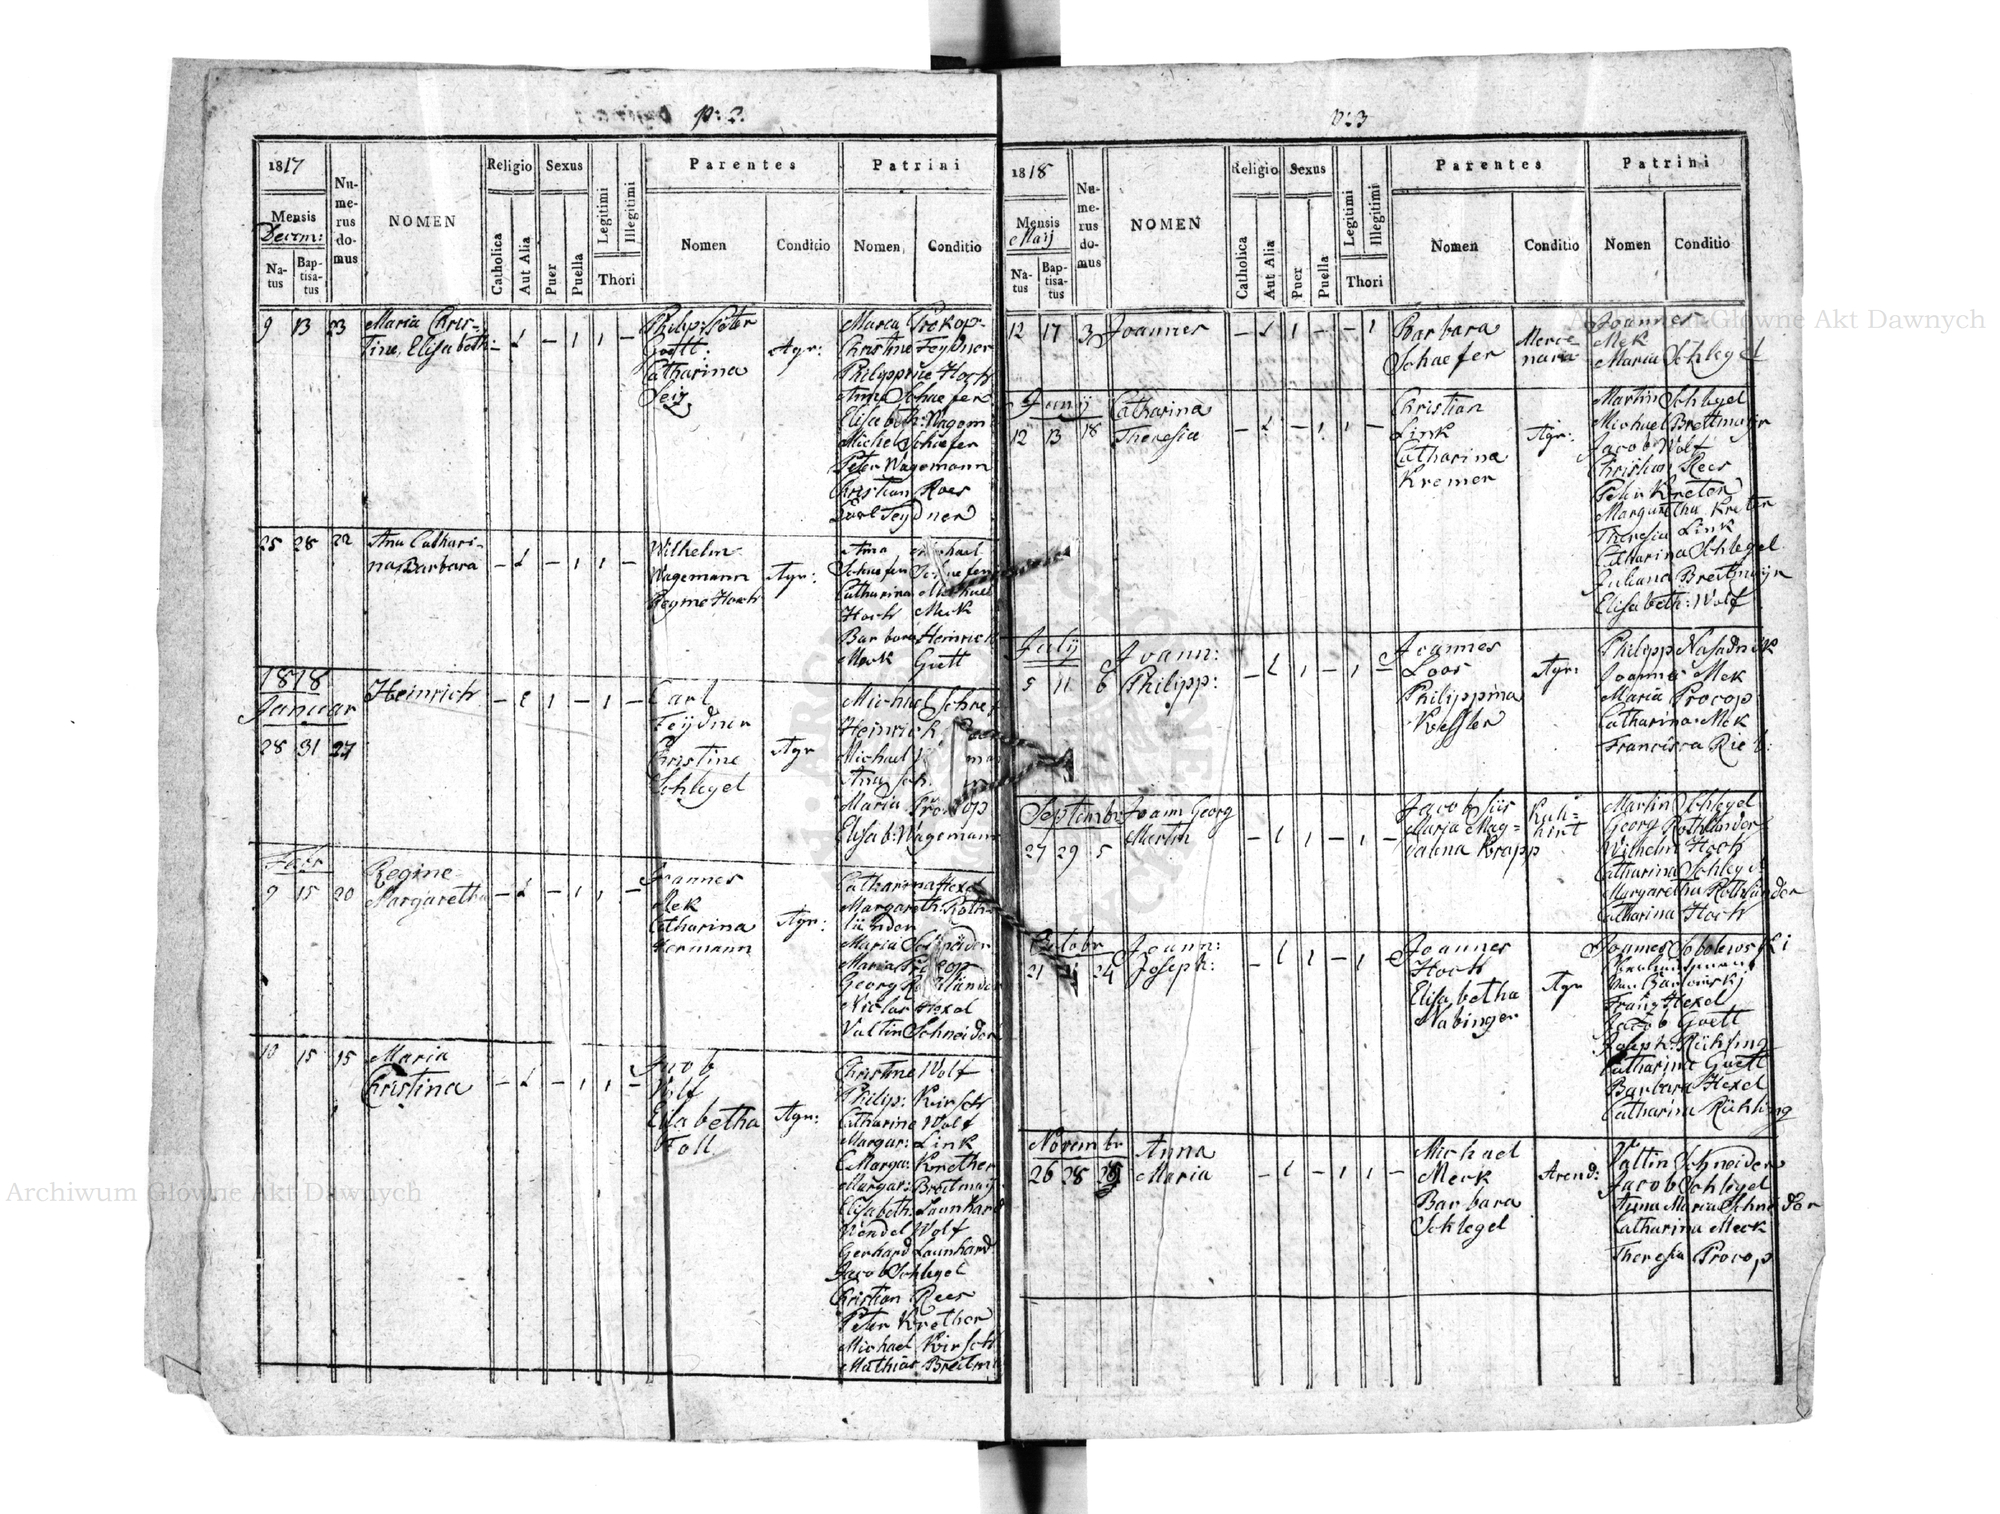 p: 2.
1817
Mensis
Decem:
Na-
tus
Bap-
tisa-
tus
Nu-
me-
rus
do-
mus
NOMEN
Religio
Catholica
Aut Alia
Sexus
Puer
Puella
Legitimi
Illegitimi
Thori
Parentes
Nomen
Conditio
Patrini
Nomen
Conditio
9 13 23
Maria Chris-
tine, Elisabeth:
Philip:
Goett:
Catharina
Seiz
Agr:
Maria Prokop
Christine Feydner
Philippine Hoch
Anna Schaefer
Elisabeth: Wagem
Michel Schaefer
Peter Wagemann
Christian Roes
Carl Feydner
25 28 22
Ana Cathari-
na, Barbara
Wilhelm
Wagemann
Regine Hoch
Agr:
Anna
Schaefer
Catharina Michael
Hoch Meck
Barbara Heinrich
Meck Goett
1818
Januar
28 31 27
Heinrich
Carl
Feydner
Christine
Schlegel
Agr
Michael Schaef
Heinrich
Michael
Ana
Maria Procop
Elisab: Wagemann
Febr
9 15 20
Regine
Margaretha
Joannes
Mek
Catharina
Hermann
Agr:
Catharina Hexel
Margareth: Roth-
länder
Maria Schneider
Maria Procop
Georg Rothländer
Niclas Hexel
Valtin Schneider
10 15 15
Maria
Christina
Jacob
Wolf
Elisabetha
Foll
Agr:
Christine Wolf
Philip: Kirsch
Catharine Wolf
Margar: Link
Marga: Krether
Margar: Breitmay
Elisabeth: Launhard
Wendel Wolf
Gerhard Launhard
Jacob Schlegel
Christian Rees
Peter Krether
Michael Kirsch
Mathias Breitm
p: 3
1818
Mensis
Maij
Na-
tus
Bap-
tisa-
tus
Nu-
me-
rus
do-
mus
NOMEN
Religio
Catholica
Aut Alia
Sexus
Puer
Puella
Legitimi
Illegitimi
Thori
Parentes
Nomen
Conditio
Patrini
Nomen
Conditio
12 17 3
Joannes
Barbara
Schaefer
Merce-
naria
Joannes
Mek
Maria Schlegel
Junij
12 13 18
Catharina
Theresia
Christian
Link
Catharina
Kremer
Agr:
Martin Schlegel
Michael Breitmayr
Jacob Wolf
Christian Rees
Peter Kreter
Margaretha Kreter
Theresia Link
Catharina Schlegel
Juliana Breitmayr
Elisabeth: Wolf
July
5 11 6
Joann:
Philipp:
Joannes
Loos
Philippina
Kessler
Agr:
Philipp
Joannes Mek
Maria Procop
Catharina Mek
Francisca
Septembr
27 29 5
Joann Georg
Martin
Jacob Süs
Maria Mag-
dalena Krapp
Kuh-
hirt
Martin Schlegel
Georg Rothländer
Wilhelm Hoch
Catharina Schlegel
Margaretha Rothländer
Catharina Hoch
Octobr
21 24
Joann:
Joseph:
Joannes
Hoch
Elisabetha
Nabinger
Agr
Joannes Sobolewski
Franz Hexel
Jacob Goett
Joseph: Rühling
Catharine Goett
Barbara Hexel
Catharina Rühling
Novembr
26 28
Anna
Maria
Michael
Meck
Barbara
Schlegel
Arend:
Valtin Schneider
Jacob Schlegel
Anna Maria Schneider
Catharina Meck
Theresia Procop
Archiwum Główne Akt Dawnych
Archiwum Główne Akt Dawnych